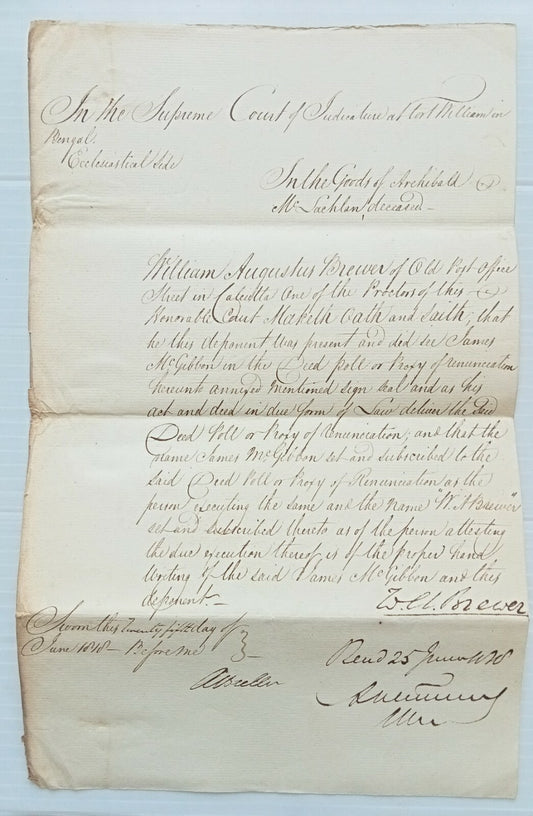 In the Supreme Court of Judicature at Fort William in
Bengal.
Ecclesiastical Side
In the Goods of Archibald
Mc Lachlan, deceased —
William Augustus Brewer of Old Post Office
Street in Calcutta One of the Proctors of this
Honorable Court Maketh Oath and Saith, that
he this deponent was present and did see James
McGibbon in the Deed Poll or Proxy of renunciation
hereunto annexed mentioned sign seal and as his
act and deed in due form of Law deliver the said
Deed Poll or Proxy of renunciation; and that the
name James McGibbon set and subscribed to the
said Deed Poll or Proxy of Renunciation as the
person executing the same and the Name "W. A Brewer"
set and subscribed thereto as of the person attesting
the due execution thereof is of the proper hand
writing of the said James McGibbon and this
deponent. —
W. A. Brewer
Sworn this Twenty fifth day of
June 1818 — Before me
Read 25 June 1818